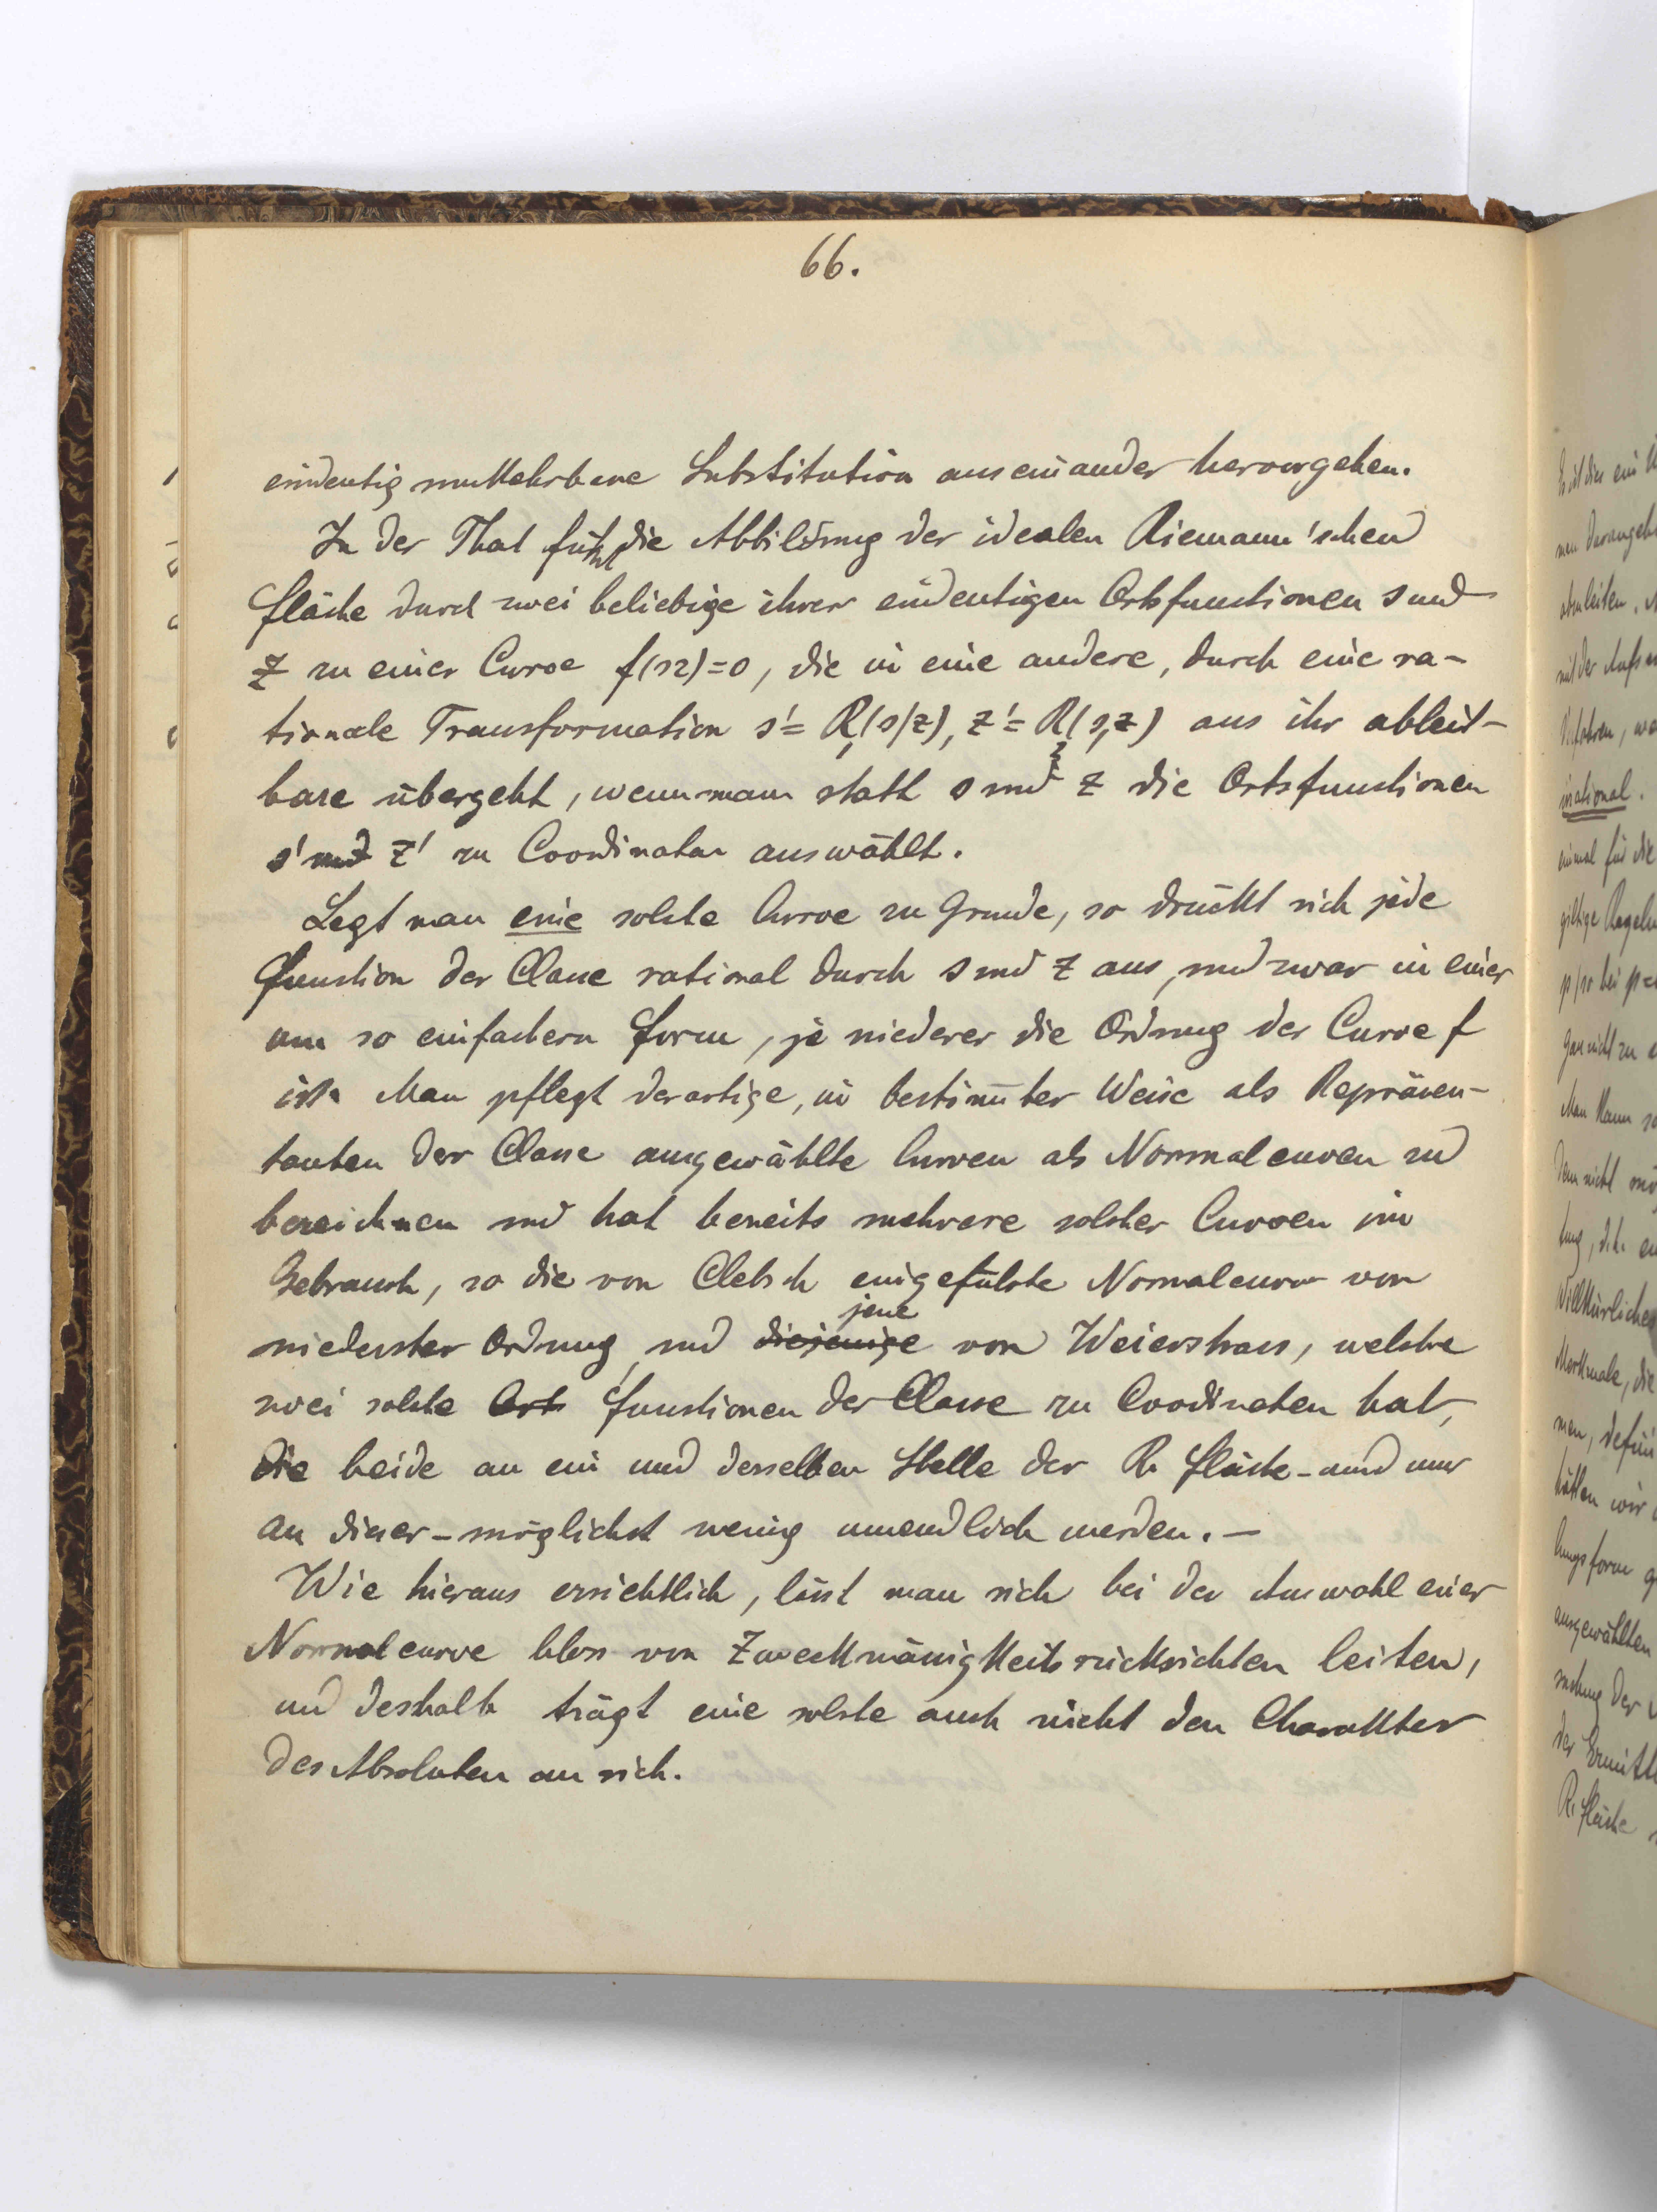 66.
eindeutig umkehrbare Substitution auseinander hervorgehen.
In der That führt die Abbildung der idealen Riemann'schen
Fläche durch zwei beliebige ihrer eindeutigen Ortsfunctionen s und
z zu einer Curve f(sz)=0, die in eine andere, durch eine ra-
tionale Transformation s'= R₁(s,z), z'= R₂(s,z) aus ihr ableit-
bare übergeht, wenn man statt s und z die Ortsfunctionen
s' und z' zu Coordinaten auswählt.
Legt man eine solche Curve zu Grunde, so drückt sich jede
Function der Classe rational durch s und z aus, und zwar in einer
um so einfachern Form, je niederer die Ordnung der Curve f
ist. Man pflegt derartige, in bestim̅ter Weise als Repräsen-
tanten der Classe ausgewählte Curven als Normalcurven zu
bezeichnen und hat bereits mehrere solcher Curven im
Gebrauch, so die von Clebsch eingeführte Normalcurve von
niederster Ordnung, und diejenige jene von Weierstrass, welche
zwei solche Orts Functionen der Classe zu Coordinaten hat,
die beide an ein und derselben Stelle der R. Fläche - und nur
an dieser - möglichst wenig unendlich werden. —
Wie hieraus ersichtlich, lässt man sich bei der Auswahl einer
Normalcurve blos von Zweckmässigkeitsrücksichten leiten,
und deshalb trägt eine solche auch nicht den Charakter
des Absoluten an sich.